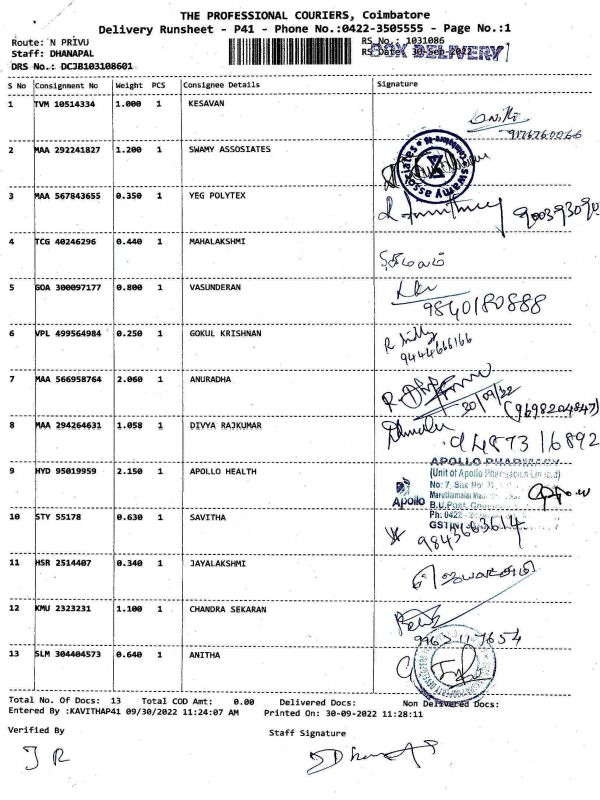 THE PROFESSIONAL COURIERS, Coimbatore
Delivery Runsheet - P41 - Phone No.:0422-3505555 - Page No.:1
Route: N PRIVU
Staff: DHANAPAL
DRS No.: DCJB103108601
RS No.: 1031086
RS Date: 30-Sep-2022
BOX DELIVERY
S No Consignment No Weight PCS Consignee Details Signature
1 TVM 10514334 1.000 1 KESAVAN
2 MAA 292241827 1.200 1 SWAMY ASSOSIATES
3 MAA 567843655 0.350 1 YEG POLYTEX
4 TCG 40246296 0.440 1 MAHALAKSHMI
5 GOA 300097177 0.800 1 VASUNDERAN
9840180888
6 VPL 499564984 0.250 1 GOKUL KRISHNAN
9444666166
7 MAA 566958764 2.060 1 ANURADHA
30/09/22
(9698204847)
8 MAA 294264631 1.058 1 DIVYA RAJKUMAR
9487316892
9 HYD 95019959 2.150 1 APOLLO HEALTH
APOLLO PHARMACY
(Unit of Apollo Pharmacies Limited)
Apollo
10 STY 55178 0.630 1 SAVITHA
9843663614
11 HSR 2514407 0.340 1 JAYALAKSHMI
12 KMU 2323231 1.100 1 CHANDRA SEKARAN
13 SLM 304404573 0.640 1 ANITHA
Total No. Of Docs: 13 Total COD Amt: 0.00 Delivered Docs: Non Delivered Docs:
Entered By :KAVITHAP41 09/30/2022 11:24:07 AM Printed On: 30-09-2022 11:28:11
Verified By Staff Signature
J R